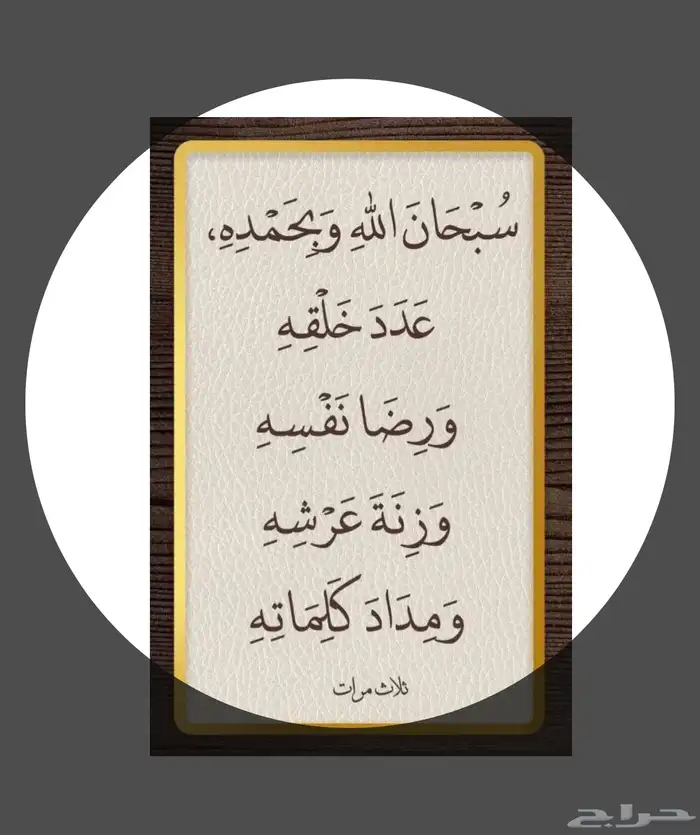 سُبْحَانَ اللهِ وَبِحَمْدِهِ،
عَدَدَ خَلْقِهِ
وَرِضَا نَفْسِهِ
وَزِنَةَ عَرْشِهِ
وَمِدَادَ كَلِمَاتِهِ
ثلاث مرات
حراج